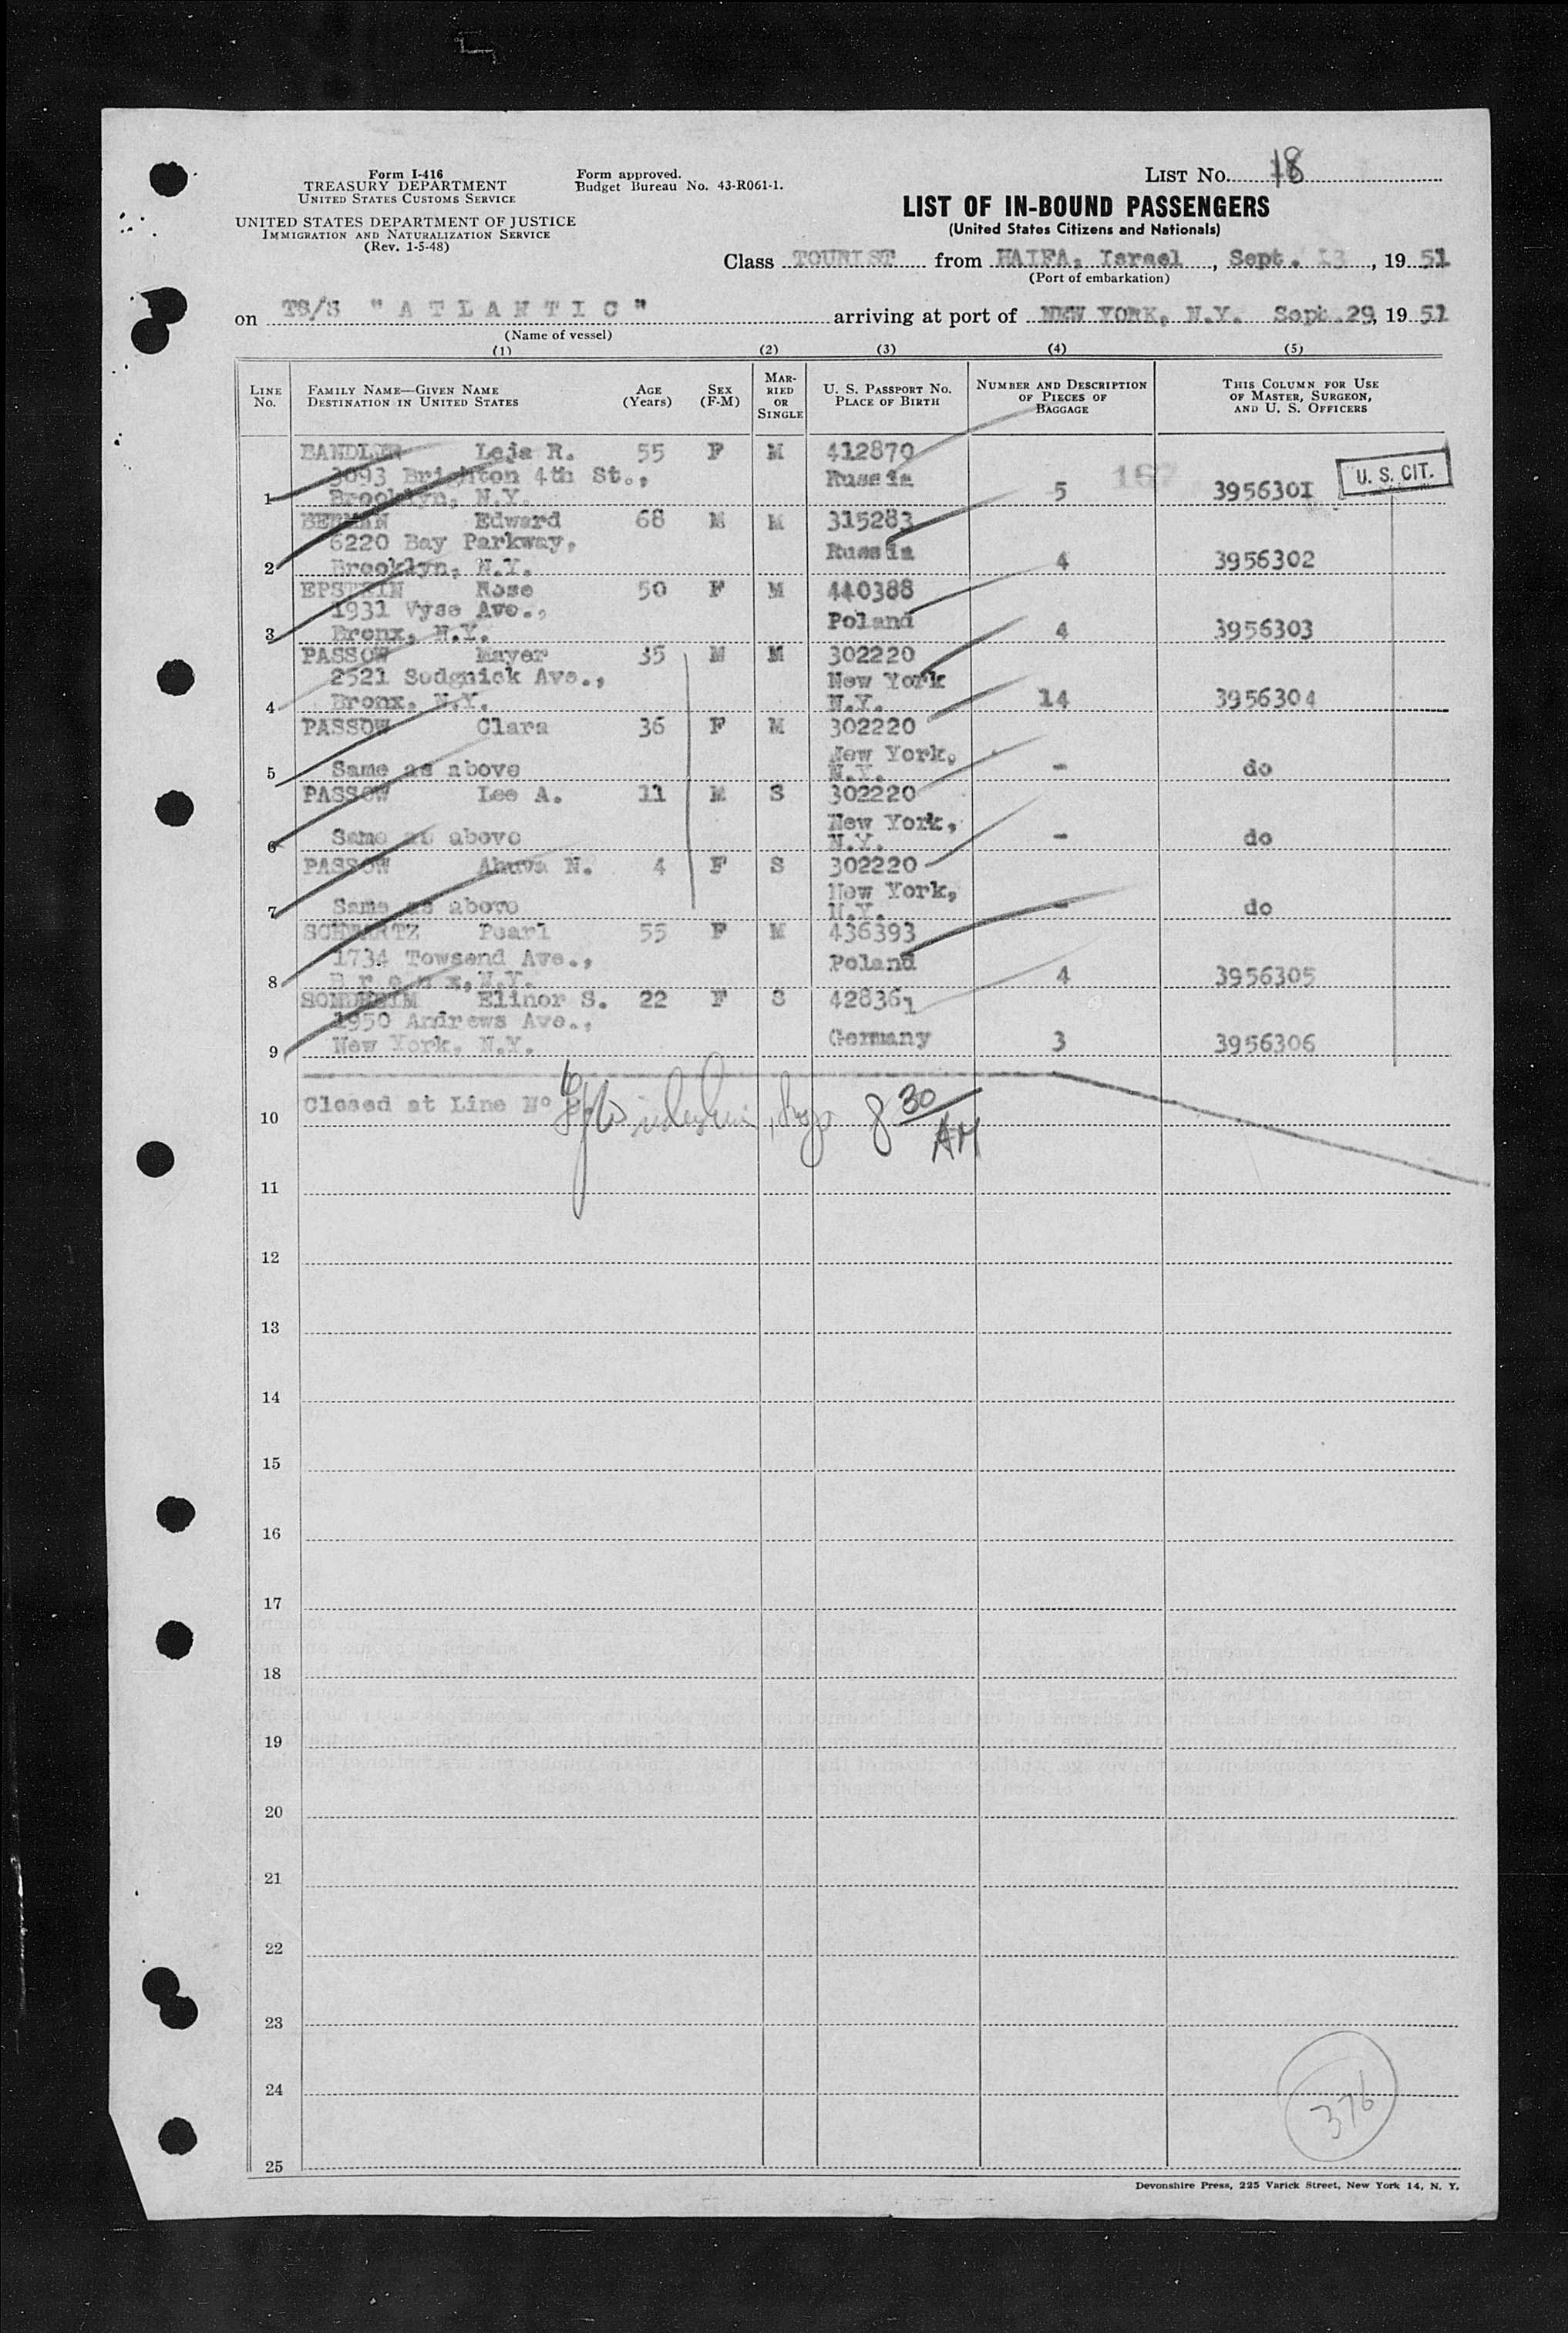 Form I-416
TREASURY DEPARTMENT
UNITED STATES CUSTOMS SERVICE
UNITED STATES DEPARTMENT OF JUSTICE
IMMIGRATION AND NATURALIZATION SERVICE
(Rev. 1-5-48)
Form approved.
Budget Bureau No. 43-R061-1.
LIST NO. 18
LIST OF IN-BOUND PASSENGERS
(United States Citizens and Nationals)
Class TOURIST from HAIFA, Israel, Sept. 13, 1951
(Port of embarkation)
on TS/S "A T L A N T I C" arriving at port of NEW YORK, N.Y. Sept. 29, 1951
(Name of vessel)
(1) (2) (3) (4) (5)
LINE NO. FAMILY NAME—GIVEN NAME DESTINATION IN UNITED STATES AGE (YEARS) SEX (F-M) MARRIED OR SINGLE U. S. PASSPORT NO. PLACE OF BIRTH NUMBER AND DESCRIPTION OF PIECES OF BAGGAGE THIS COLUMN FOR USE OF MASTER, SURGEON, AND U. S. OFFICERS
BANDLER Leja R. 55 F M 412870
3093 Brighton 4th St., Russia 167 U. S. CIT.
1 Brooklyn, N.Y. 5 3956301
BERMAN Edward 68 M M 315283
6220 Bay Parkway, Russia
2 Brooklyn, N.Y. 4 3956302
EPSTEIN Rose 50 F M 440388
1931 Vyse Ave., Poland
3 Bronx, N.Y. 4 3956303
PASSOW Mayer 35 M M 302220
2521 Sedgnick Ave., New York
4 Bronx, N.Y. N.Y. 14 3956304
PASSOW Clara 36 F M 302220
New York,
5 Same as above N.Y. - do
PASSOW Lee A. 11 M S 302220
New York,
6 Same as above N.Y. - do
PASSOW Ahuva N. 4 F S 302220
New York,
7 Same as above N.Y. - do
SCHWARTZ Pearl 55 F M 436393
1734 Towsend Ave., Poland
8 B r o n x, N.Y. 4 3956305
SONDHEIM Elinor S. 22 F S 428361
1950 Andrews Ave.,
9 New York, N.Y. Germany 3 3956306
Closed at Line Nº 9. 8 30 AM
10
11
12
13
14
15
16
17
18
19
20
21
22
23
24
376
25
Devonshire Press, 225 Varick Street, New York 14, N. Y.